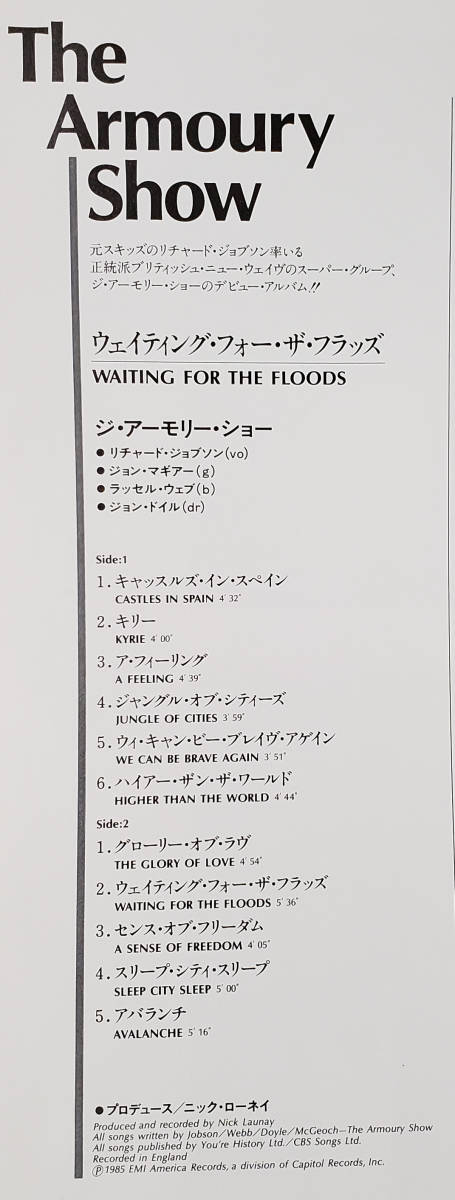 The
Armoury
Show
元スキッズのリチャード・ジョブソン率いる
正統派ブリティッシュ・ニュー・ウェイヴのスーパー・グループ、
ジ・アーモリー・ショーのデビュー・アルバム!!
ウェイティング・フォー・ザ・フラッズ
WAITING FOR THE FLOODS
ジ・アーモリー・ショー
● リチャード・ジョブソン(vo)
● ジョン・マギアー(g)
● ラッセル・ウェブ(b)
● ジョン・ドイル(dr)
Side:1
1. キャッスルズ・イン・スペイン
CASTLES IN SPAIN 4′32″
2. キリー
KYRIE 4′00″
3. ア・フィーリング
A FEELING 4′39″
4. ジャングル・オブ・シティーズ
JUNGLE OF CITIES 3′59″
5. ウィ・キャン・ビー・ブレイヴ・アゲイン
WE CAN BE BRAVE AGAIN 3′51″
6. ハイアー・ザン・ザ・ワールド
HIGHER THAN THE WORLD 4′44″
Side:2
1. グローリー・オブ・ラヴ
THE GLORY OF LOVE 4′54″
2. ウェイティング・フォー・ザ・フラッズ
WAITING FOR THE FLOODS 5′36″
3. センス・オブ・フリーダム
A SENSE OF FREEDOM 4′05″
4. スリープ・シティ・スリープ
SLEEP CITY SLEEP 5′00″
5. アバランチ
AVALANCHE 5′16″
● プロデュース/ニック・ローネイ
Produced and recorded by Nick Launay
All songs written by Jobson/Webb/Doyle/McGeoch—The Armoury Show
All songs published by You're History Ltd./CBS Songs Ltd.
Recorded in England
Ⓟ1985 EMI America Records, a division of Capitol Records, Inc.